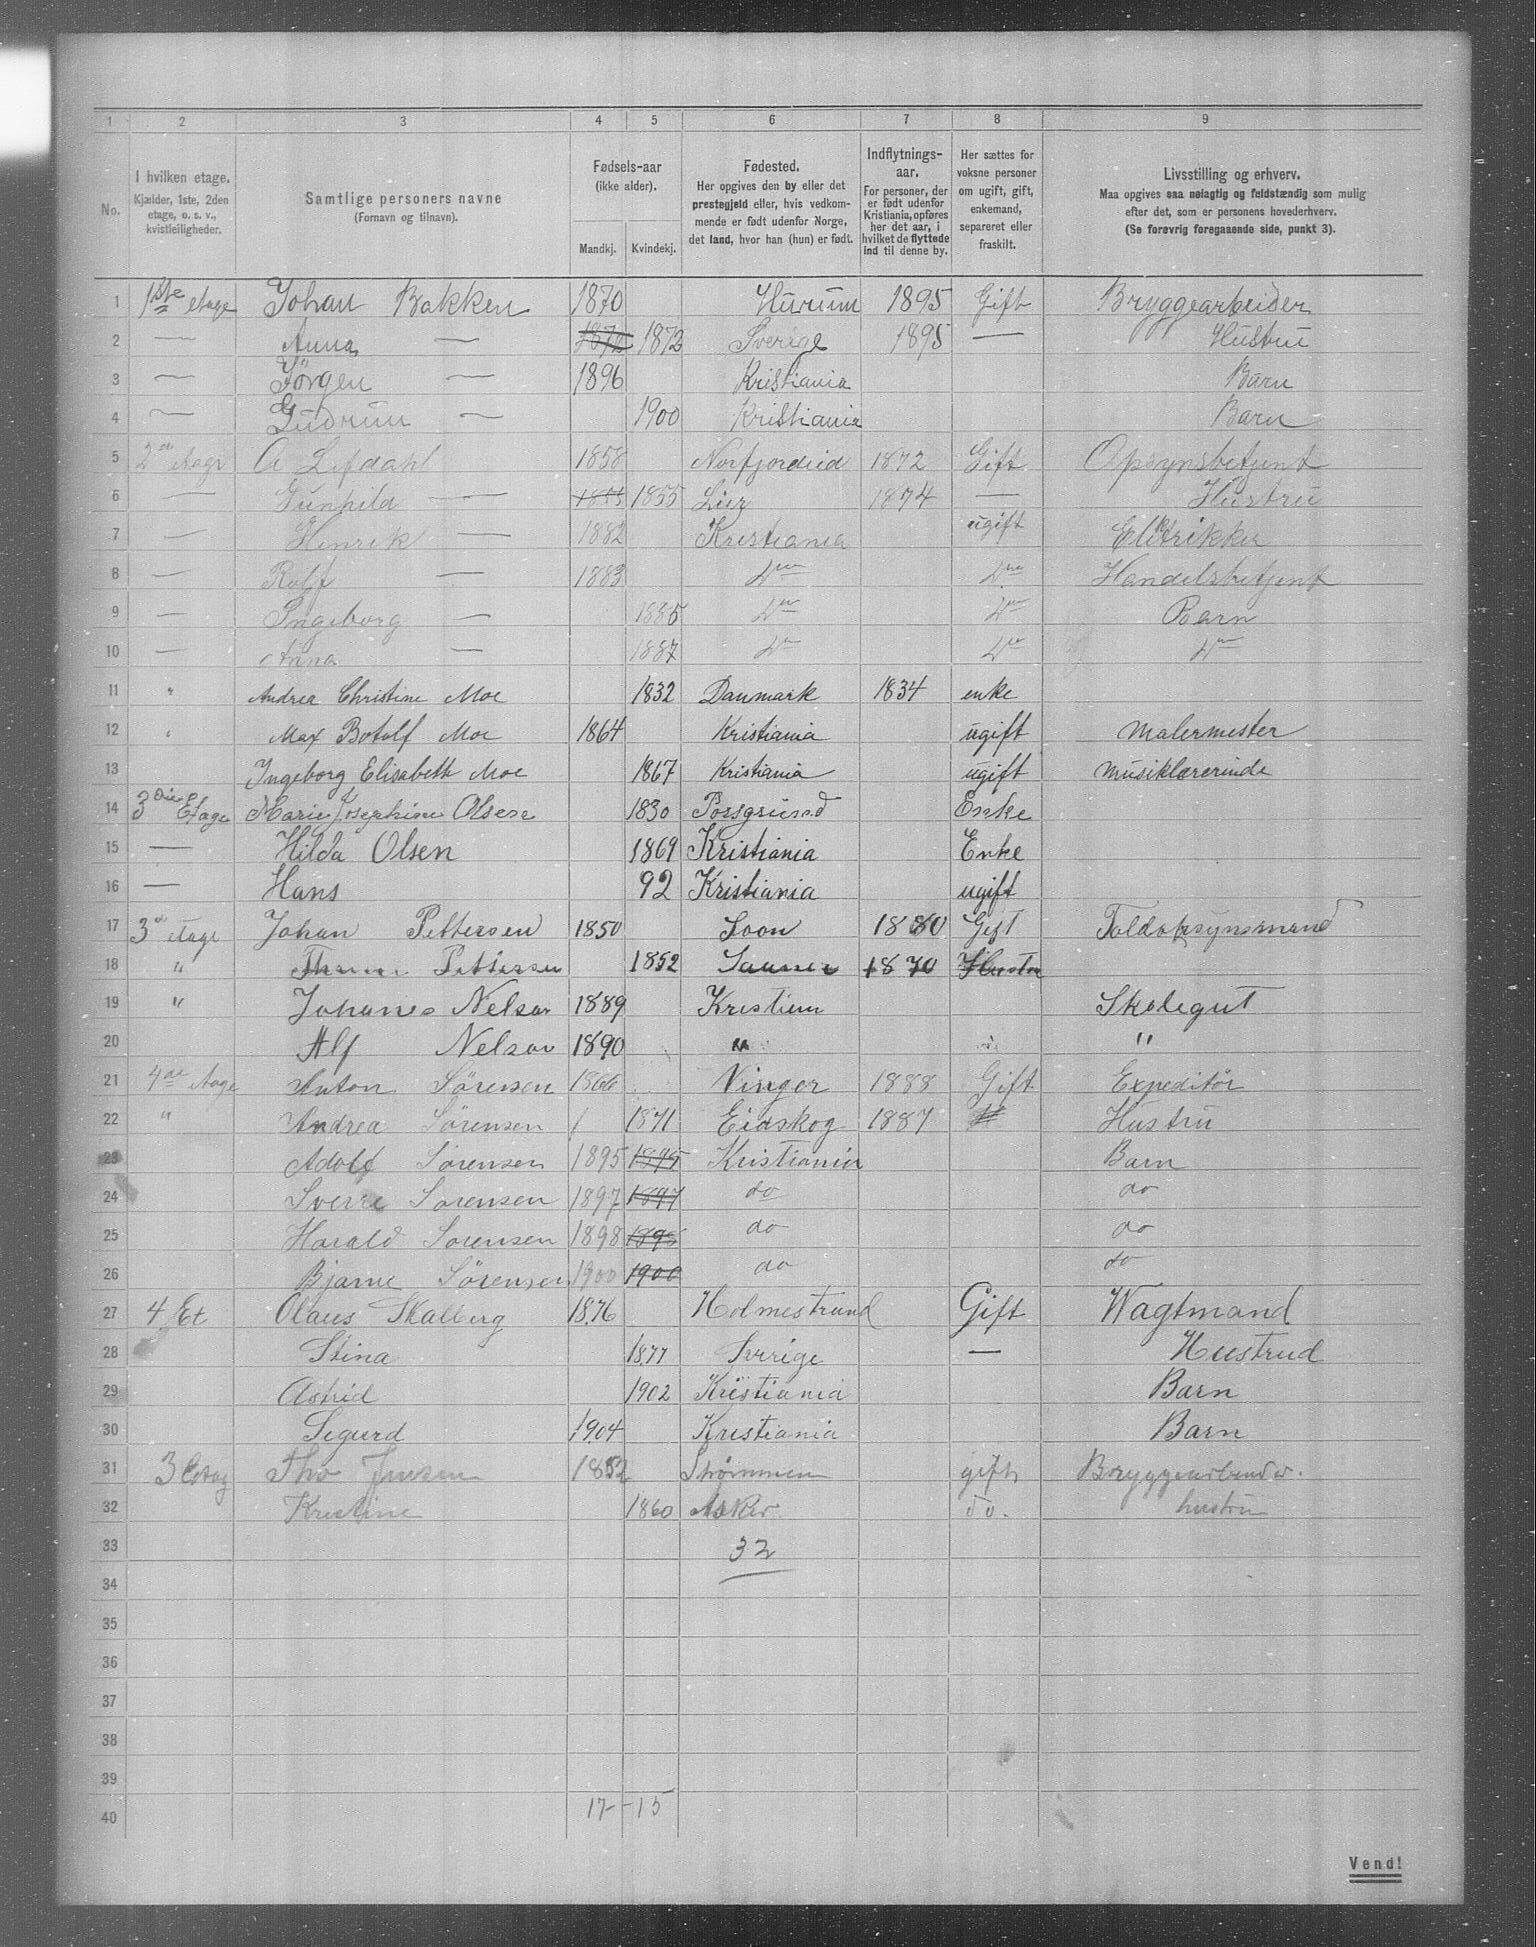 1 2 3 4 5 6 7 8 9
No. I hvilken etage. Kjælder, 1ste, 2den etage, o. s. v., kvistleiligheder. Samtlige personers navne (Fornavn og tilnavn). Fødsels-aar (ikke alder). Mandkj. Kvindekj. Fødested. Her opgives den by eller det prestegjeld eller, hvis vedkommende er født udenfor Norge, det land, hvor han (hun) er født. Indflytnings-aar. For personer, der er født udenfor Kristiania, opføres her det aar, i hvilket de flyttede ind til denne by. Her sættes for voksne personer om ugift, gift, enkemand, separeret eller fraskilt. Livsstilling og erhverv. Maa opgives saa nøiagtig og fuldstændig som mulig efter det, som er personens hovederhverv. (Se forøvrig foregaaende side, punkt 3).
1 1ste etage Johan Bakken 1870 Hurum 1895 Gift Bryggearbeider
2 — Anna — 1872 1872 Sverige 1895 — Hustru
3 — Jörgen — 1896 Kristiania Barn
4 — Gudrun — 1900 Kristiania Barn
5 2den etage A Lefdahl 1858 Norfjordeid 1872 Gift Opsynsbetjent
6 — Gunhild — 1855 1855 Lier 1874 — Hustru
7 — Henrik — 1882 Kristiania ugift Eletrikker
8 — Rolf — 1883 Do Do Handelsbetjent
9 — Ingeborg — 1885 Do Do Barn
10 — Anna — 1887 Do Do Do
11 " Andrea Christine Moe 1832 Danmark 1834 enke
12 " Max Botolf Moe 1864 Kristiania ugift Malermester
13 Ingeborg Elisabeth Moe 1867 Kristiania ugift Musiklærerinde
14 3die Etage Marie Josephine Olsen 1830 Porsgrund Enke
15 — Hilda Olsen 1869 Kristiania Enke
16 — Hans 92 Kristiania ugift
17 3d etage Johan Pettersen 1850 Soon 1880 Gift Toldopsynsmand
18 " Pettersen 1852 1870 Hustru
19 " Johanes Nelson 1889 Kristian Skolegut
20 Alf Nelson 1890 " "
21 4de Etage Anton Sörensen 1866 Vinger 1888 Gift Expeditör
22 " Andrea Sörensen 1871 Eidskog 1887 Hustru
23 Adolf Sörensen 1895 1895 Kristiania Barn
24 Sverre Sorensen 1897 1897 do do
25 Harald Sorensen 1898 1898 do do
26 Bjarne Sörensen 1900 1900 do do
27 4 Et Olaus Skalberg 1876 Holmestrand Gift Wagtmand
28 Stina 1877 Sverige — Hustrud
29 Astrid 1902 Kristiania Barn
30 Sigurd 1904 Kristiania Barn
31 3 Etag Tho Jensen 1852 Strömmen gift Bryggearbeider.
32 Kristine 1860 Asker do. hustru
33 32
34
35
36
37
38
39
40 17 - 15
Vend!